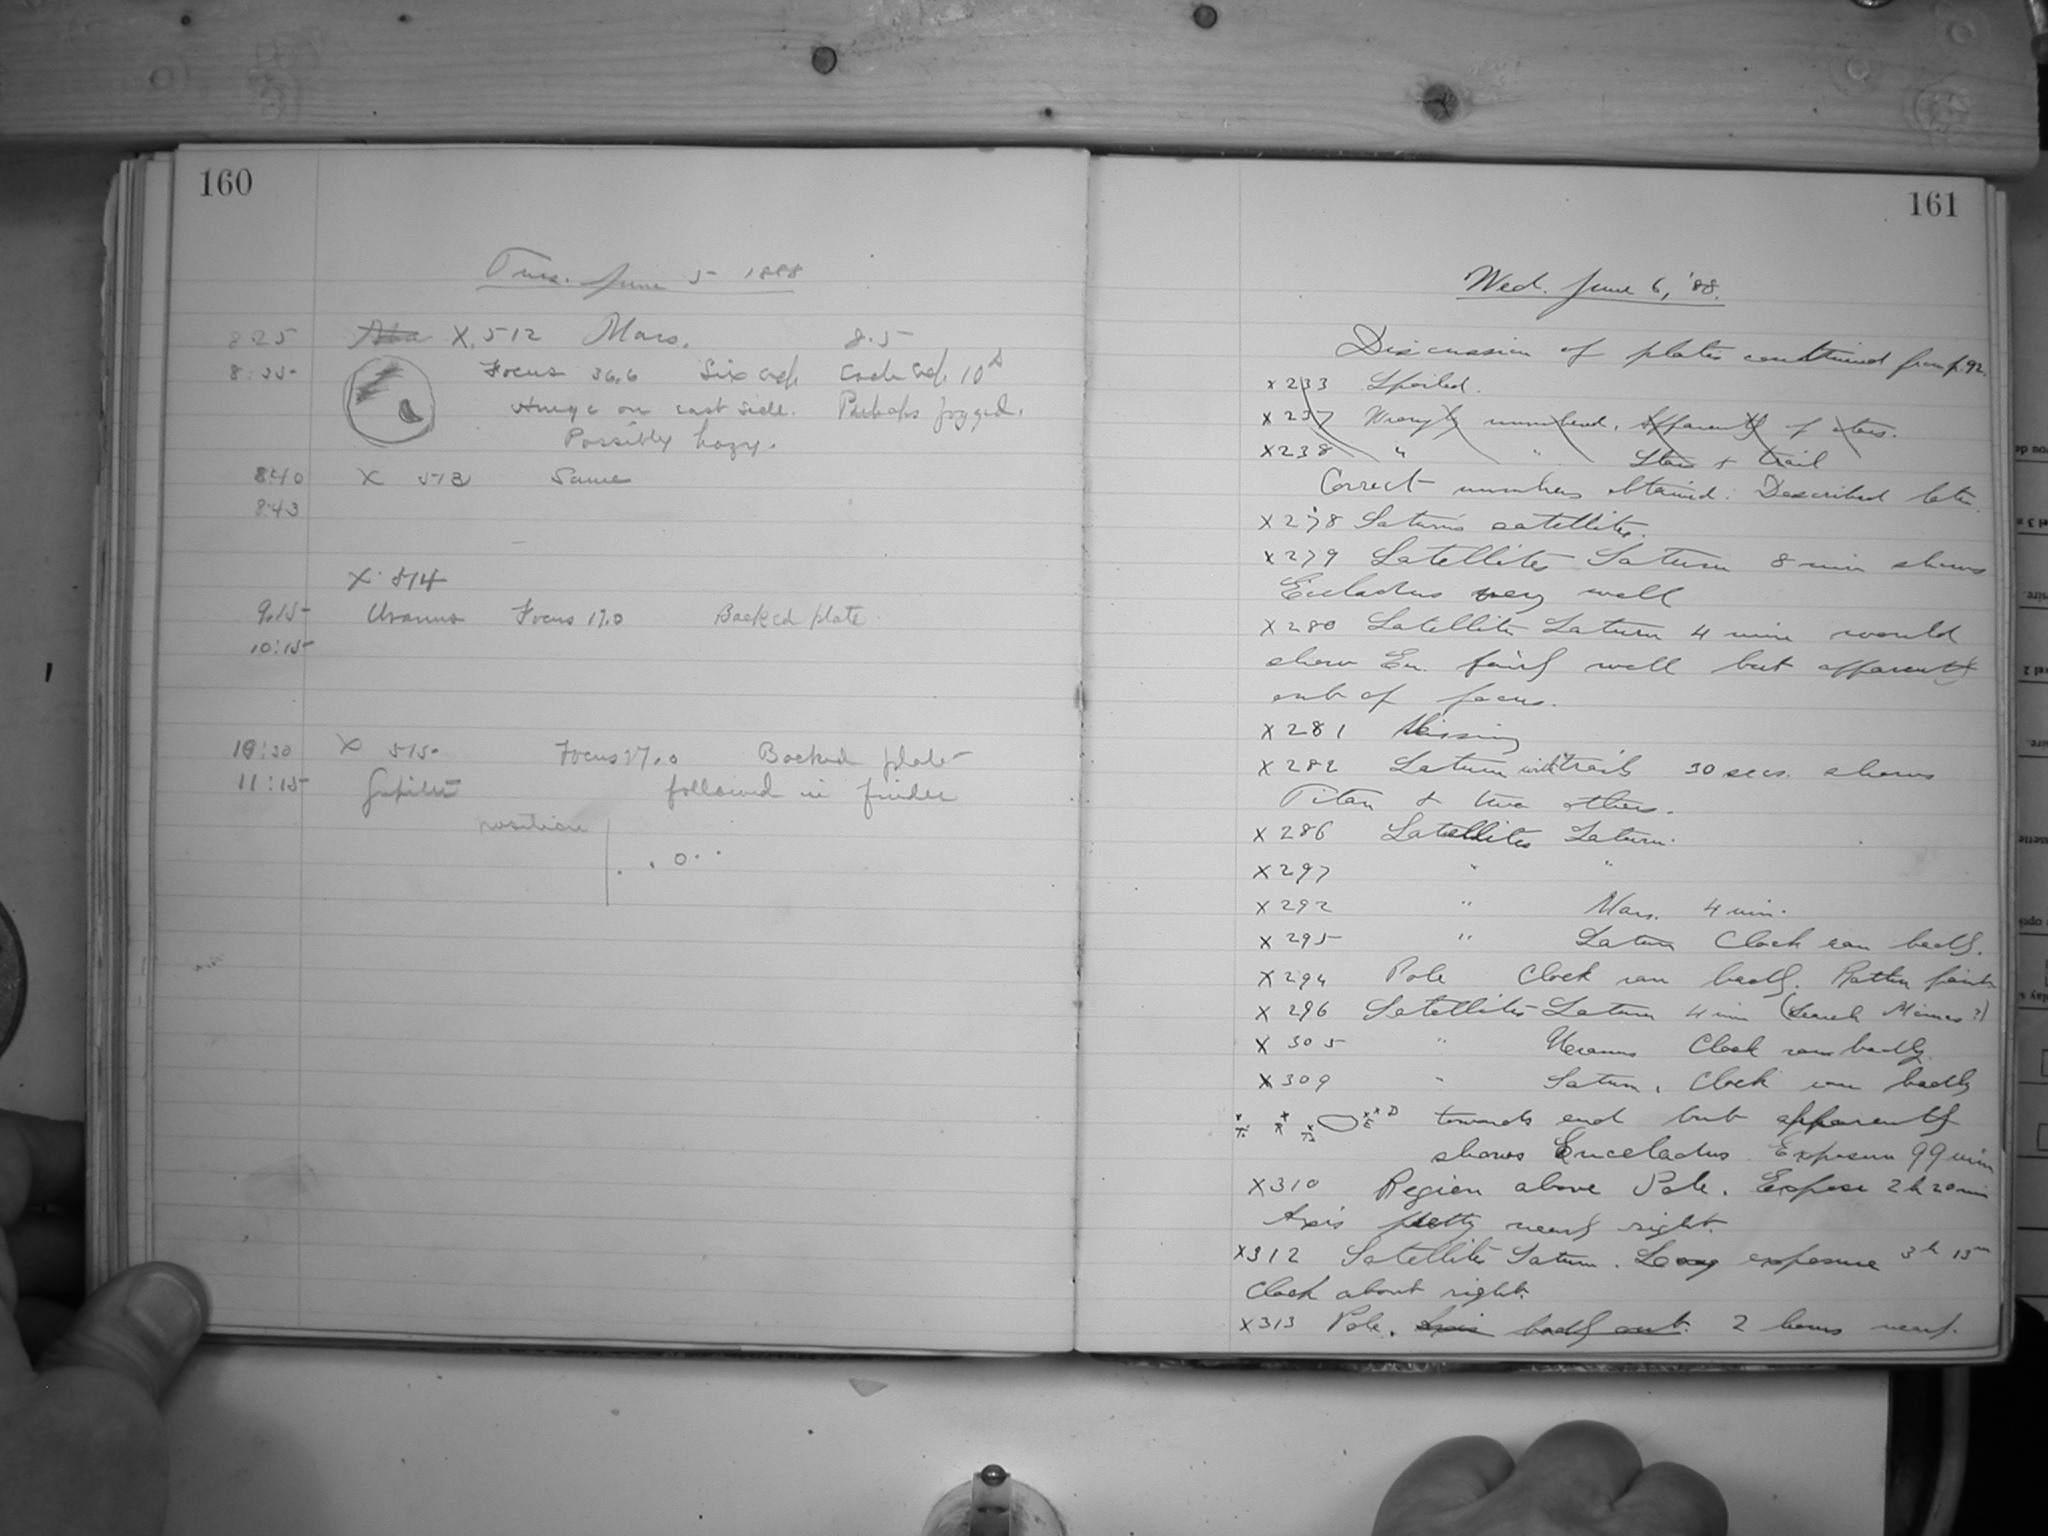 160
Tues. June 5 1888
8 25 X 512 Mars. 8.5
8:35 Focus 36.6 Six exp. each exp. 10s
on east side. Perhaps fogged.
Possibly hazy.
8:40 X 513 Same
8:43
X 514
9.15 Uranus Focus 17.0 Backed plate
10:15
10:30 X 515 Focus 27.0 Backed plate
11:15 Jupiter followed in finder
position
161
Wed. June 6, '88.
Discussion of plates continued from p. 92.
X 233 Spoiled.
X 237 Wrongly numbered. Apparently of stars.
X 238 " " Stars & trail
Correct numbers obtained. Described later.
X 278 Saturn's satellites.
X 279 Satellites Saturn 8 min shows
Enceladus very well
X 280 Satellites Saturn 4 min would
show En. fairly well but apparently
out of focus.
X 281 Missing
X 282 Saturn with trails 30 secs. shows
Titan & two others.
X 286 Satellites Saturn.
X 297 " "
X 292 " Mars. 4 min.
X 295 " Saturn Clock ran badly.
X 294 Pole Clock ran badly. Rather faint
X 296 Satellites Saturn 4 min (Search Mimas?)
X 305 " Uranus Clock ran badly.
X 309 " Saturn. Clock ran badly
towards end but apparently
shows Enceladus. Exposure 99 min
X 310 Region above Pole. Expose 2h 20 min
Axis pretty nearly right.
X 312 Satellites Saturn. Long exposure 3h 15m
Clock about right.
X 313 Pole. Axis badly out. 2 hours nearly.